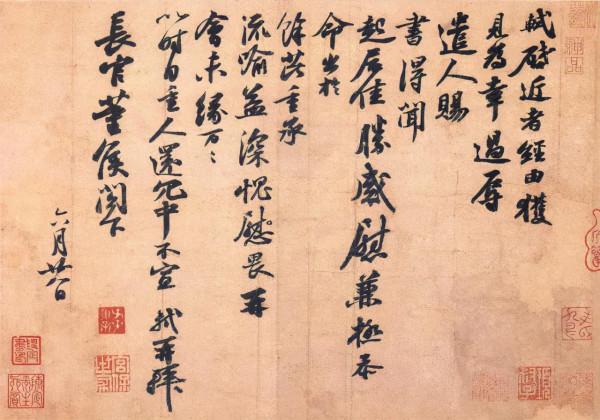 軾啓近者經由獲
見爲幸過辱
遣人賜
書得聞
起居佳勝感慰兼極忝
命出於
餘芘重承
流喻益深愧慰畏再
會未緣万〻
以時自重人還冗中不宣軾再拜
長官董侯閤下
六月廿八日